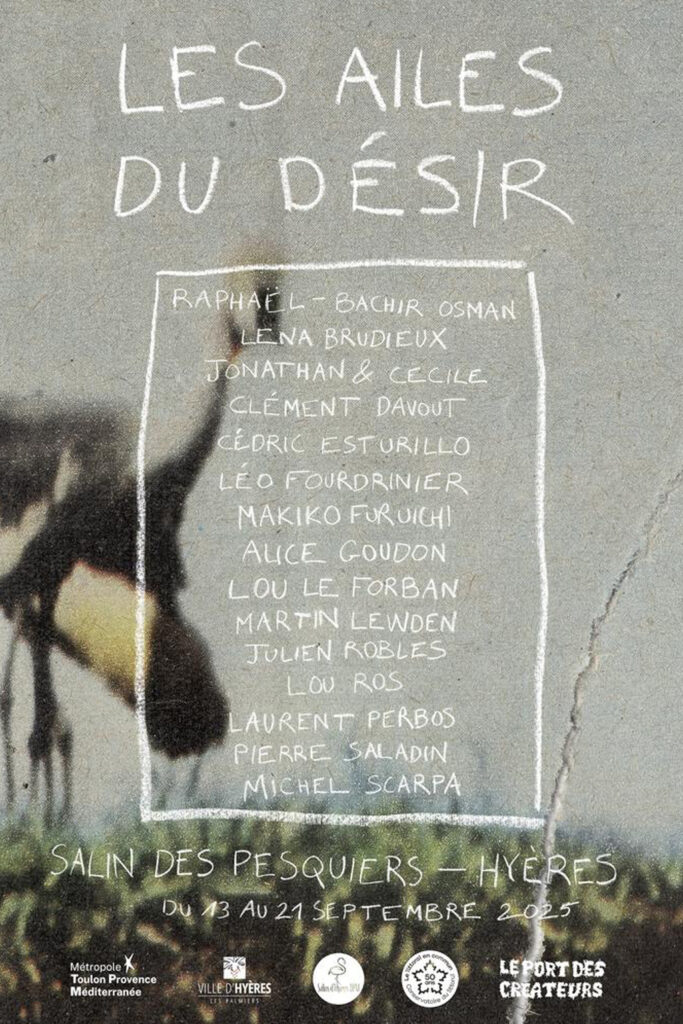 LES AILES
DU DÉSIR
RAPHAËL - BACHIR OSMAN
LENA BRUDIEUX
JONATHAN & CECILE
CLÉMENT DAVOUT
CÉDRIC ESTURILLO
LÉO FOURDRINIER
MAKIKO FURUICHI
ALICE GOUDON
LOU LE FORBAN
MARTIN LEWDEN
JULIEN ROBLES
LOU ROS
LAURENT PERBOS
PIERRE SALADIN
MICHEL SCARPA
SALIN DES PESQUIERS – HYÈRES
DU 13 AU 21 SEPTEMBRE 2025
Métropole
Toulon Provence
Méditerranée
VILLE D'HYÈRES
LES PALMIERS
50
LE PORT DES
CREATEURS